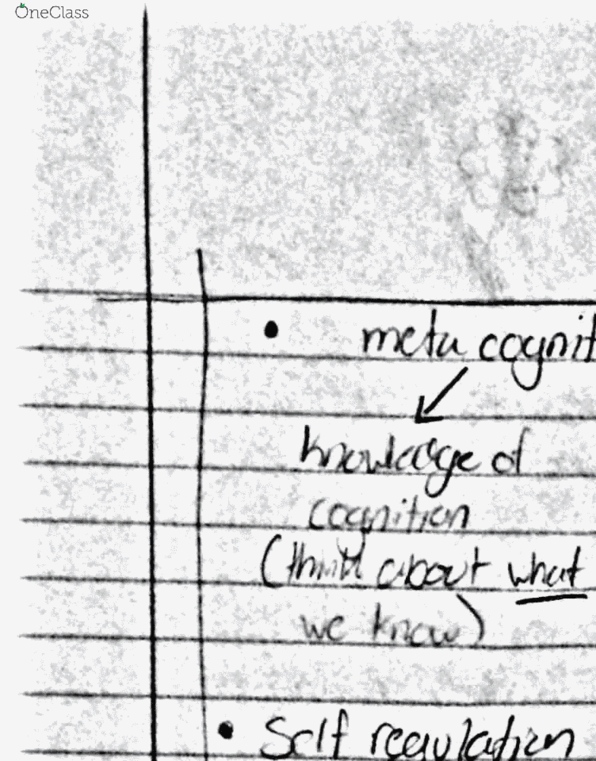 OneClass
• meta cognit
knowledge of
cognition
(think about what
we know)
• Self regulation